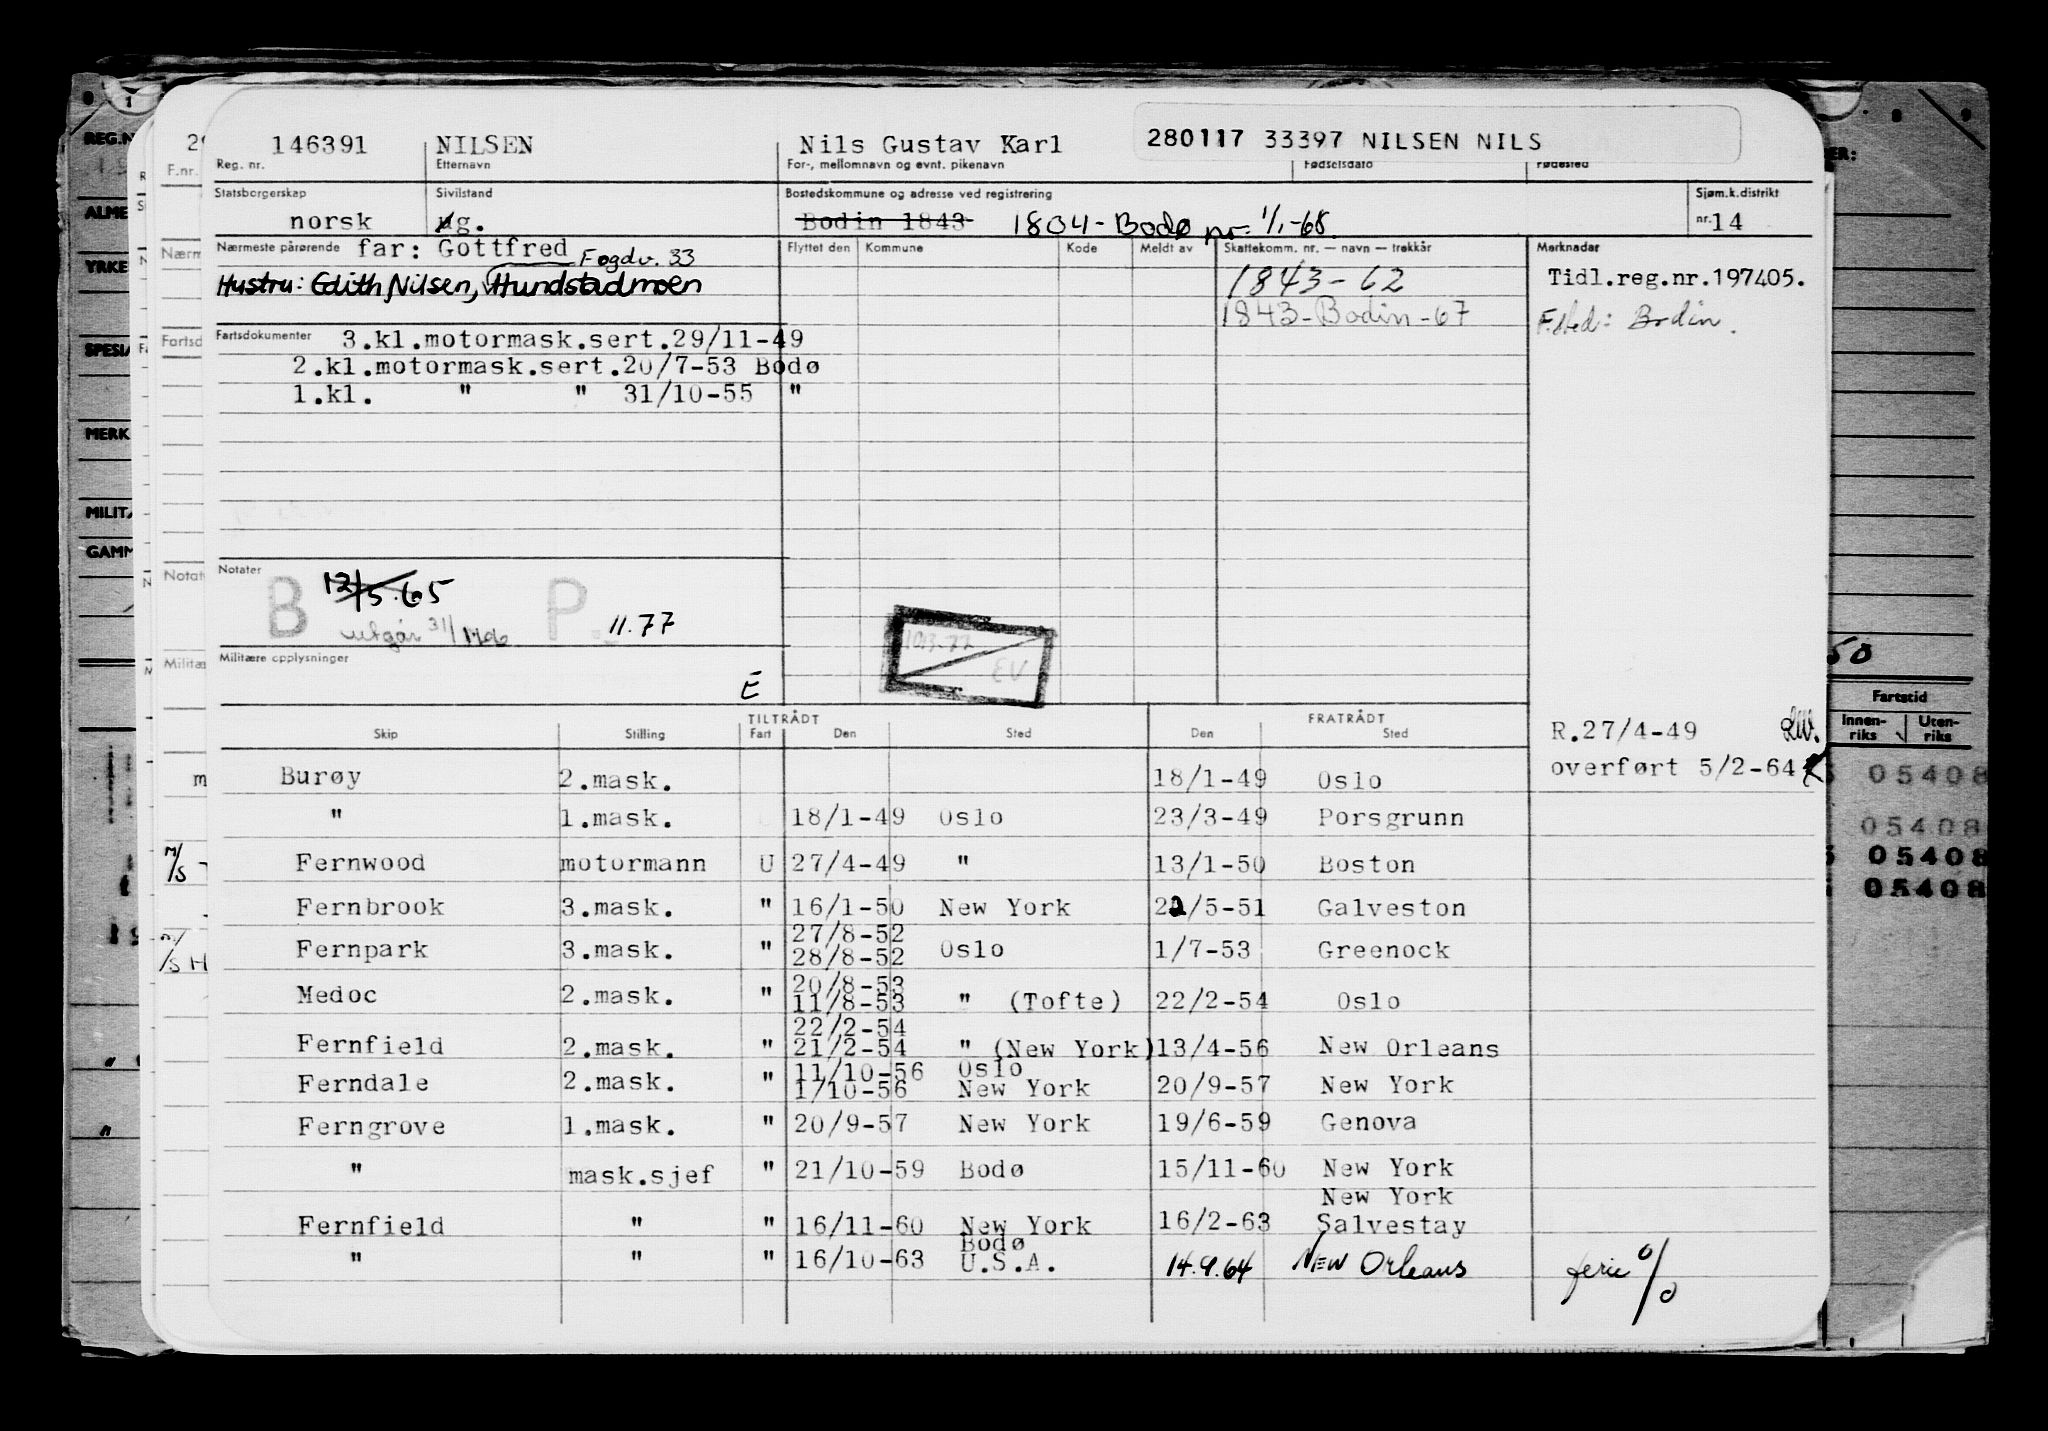 146391 NILSEN Nils Gustav Karl 280117 33397 NILSEN NILS
Reg. nr. Etternavn For-, mellomnavn og evnt. pikenavn Fødselsdato Fødested
Statsborgerskap Sivilstand Bostedskommune og adresse ved registrering Sjøm.k.distrikt
norsk g. Bodin 1843 1804 - Bodø pr. 1/1-68 nr. 14
Nærmeste pårørende far: Gottfred Fogdv. 33 Flyttet den Kommune Kode Meldt av Skattekomm. nr. — navn — trekkår Merknader
Hustru: Edith Nilsen, Hundstadmoen 1843-62 Tidl.reg.nr.197405.
1843-Bodin-67 F.sted: Bodin.
Fartsdokumenter 3.kl.motormask.sert.29/11-49
2.kl.motormask.sert.20/7-53 Bodø
1.kl. " " 31/10-55 "
Notater
B 12/5.65 P.
utgår 31/ 11.77
Militære opplysninger
E
EV
TILTRÅDT FRATRÅDT
Skip Stilling Fart Den Sted Den Sted
R.27/4-49
overført 5/2-64
Burøy 2.mask. 18/1-49 Oslo
" 1.mask. 18/1-49 Oslo 23/3-49 Porsgrunn
Fernwood motormann U 27/4-49 " 13/1-50 Boston
Fernbrook 3.mask. " 16/1-50 New York 22/5-51 Galveston
27/8-52
Fernpark 3.mask. " 28/8-52 Oslo 1/7-53 Greenock
20/8-53
Medoc 2.mask. " 11/8-53 " (Tofte) 22/2-54 Oslo
22/2-54
Fernfield 2.mask. " 21/2-54 " (New York) 13/4-56 New Orleans
11/10-56 Oslo
Ferndale 2.mask. " 1/10-56 New York 20/9-57 New York
Ferngrove 1.mask. " 20/9-57 New York 19/6-59 Genova
" mask.sjef " 21/10-59 Bodø 15/11-60 New York
New York
Fernfield " " 16/11-60 New York 16/2-63 Salvestay
Bodø
" " " 16/10-63 U.S.A. 14.9.64 New Orleans ferie o/o
REG.N
ALME
YRKE
SPESIA
MERK
MILIT
GAMM
F.nr.
Nærm
Fartsd
Notat
Militæ
M/S
M/S H
50
Fartstid
Innen-riks Uten-riks
05408
05408
05408
05408